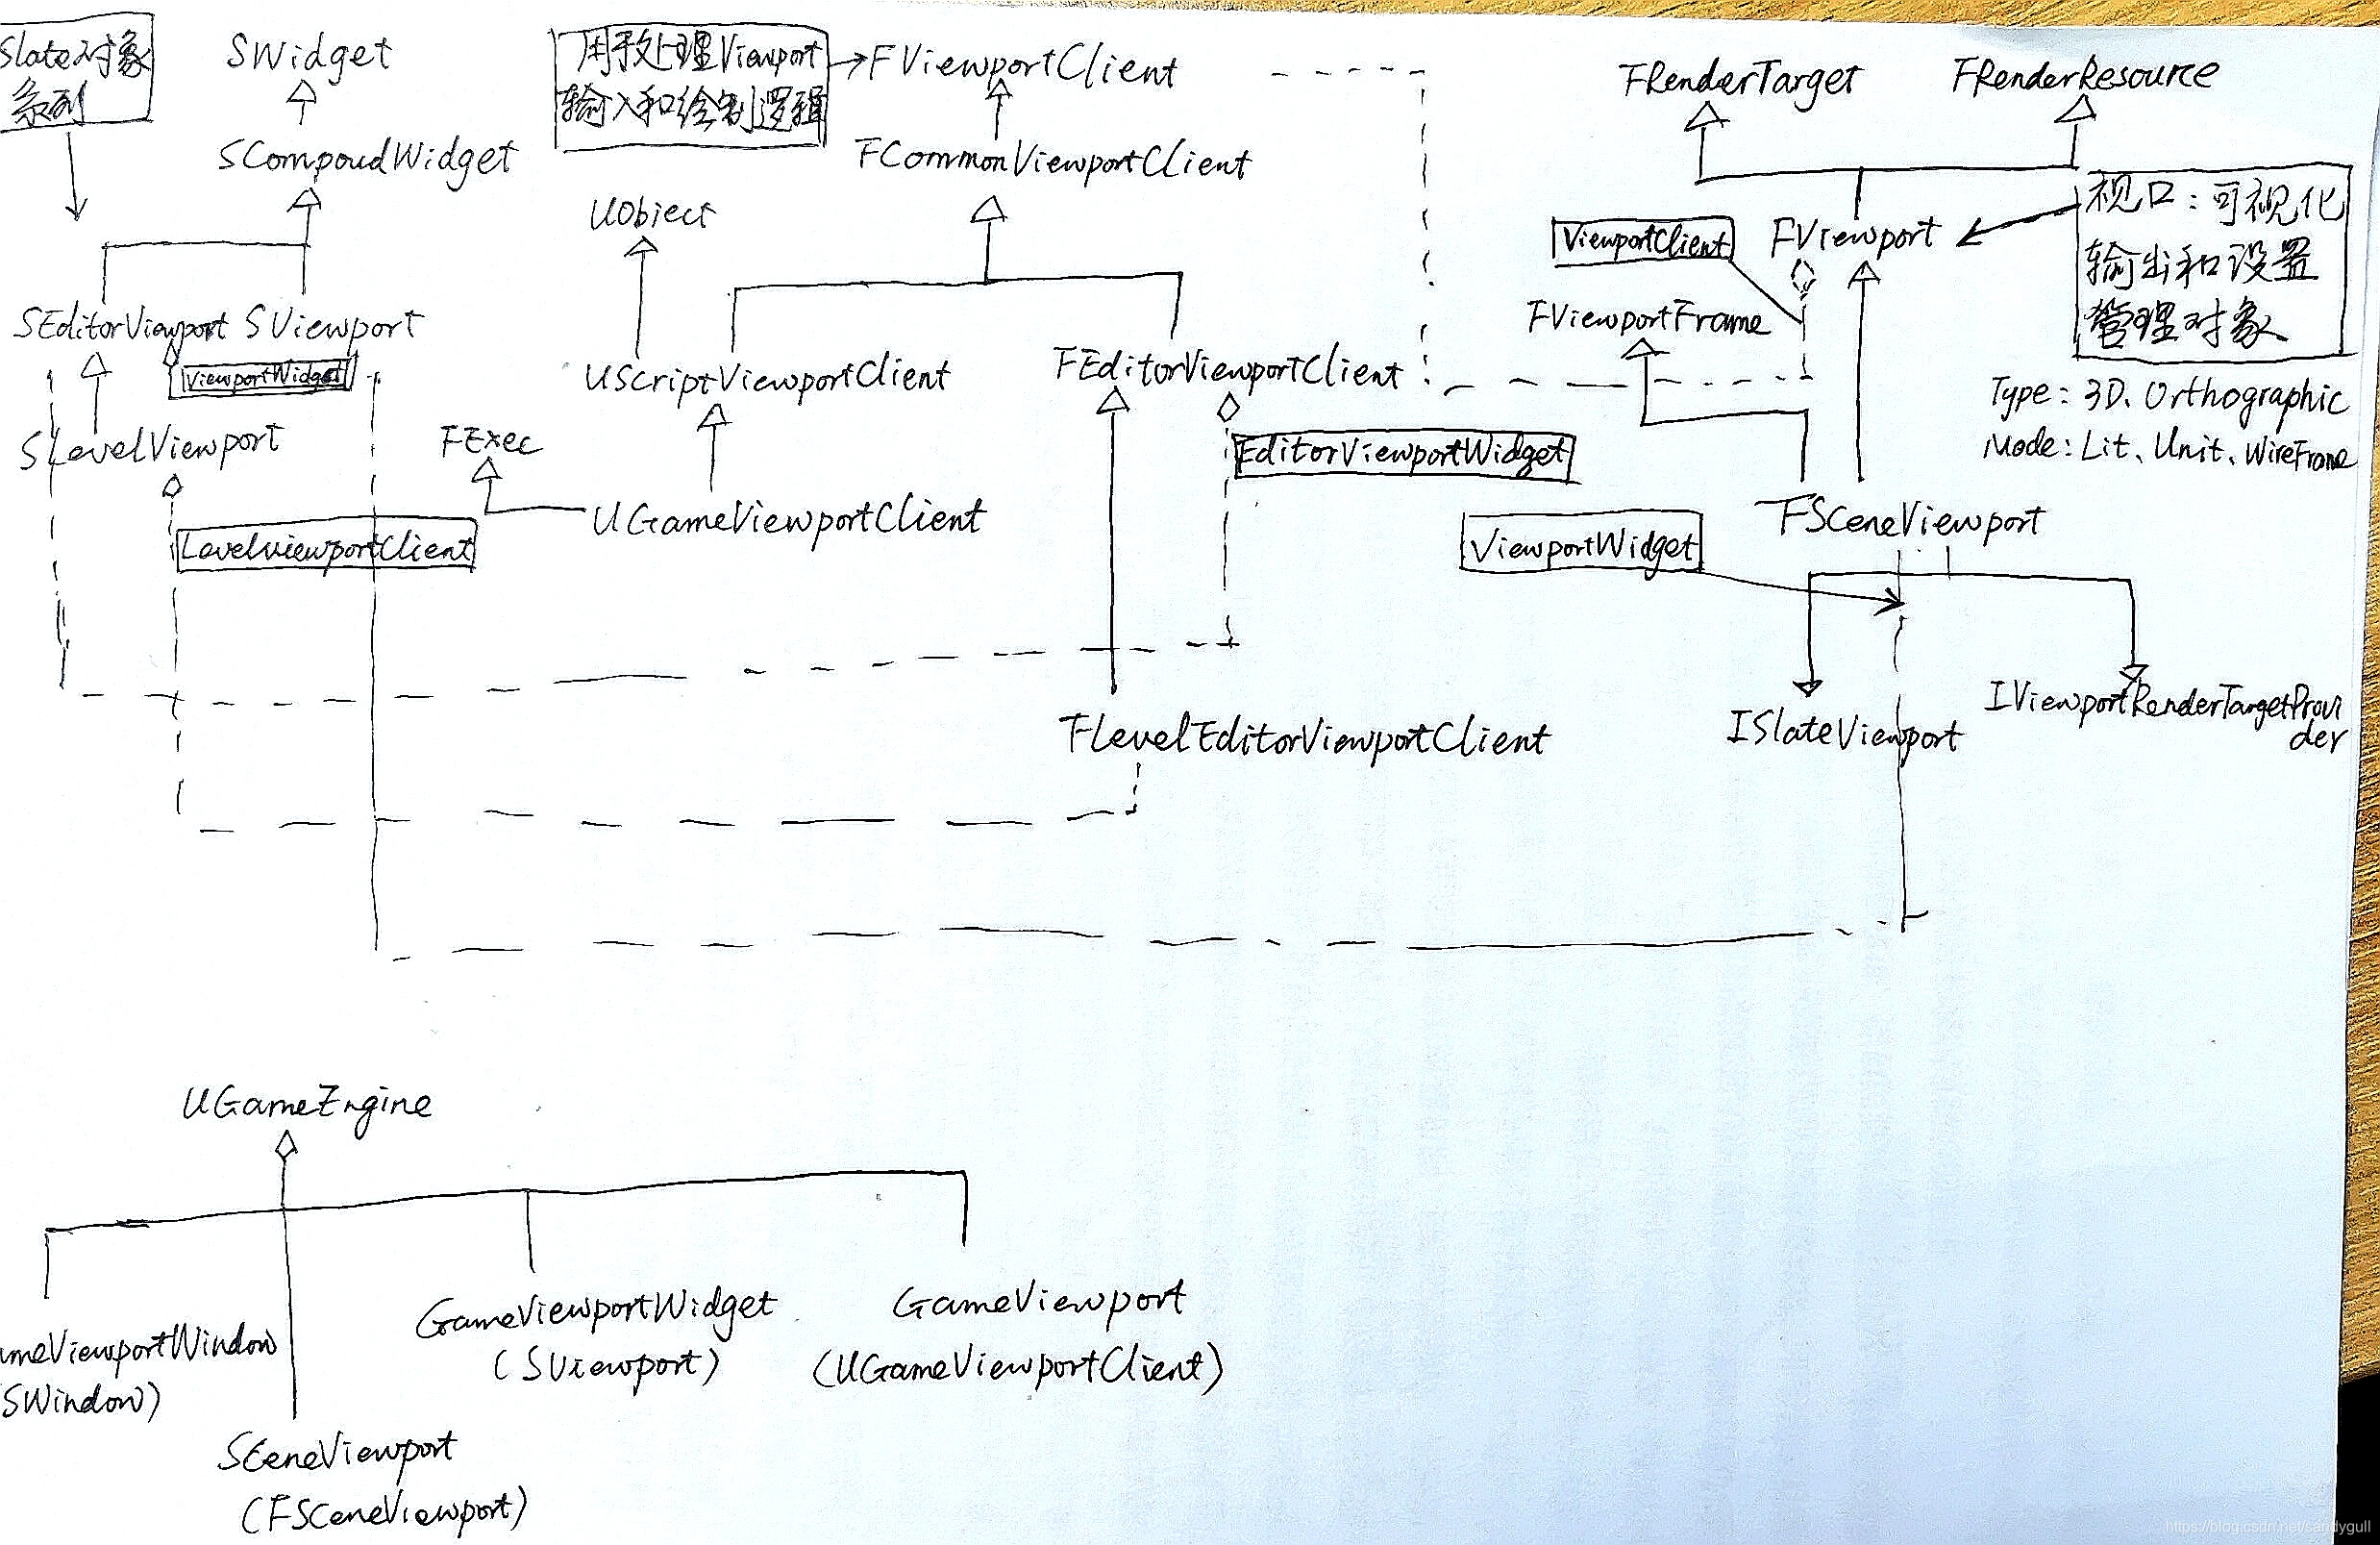 Slate对象
系列
SWidget
SCompoudWidget
SEditorViewport
SViewport
ViewportWidget
SLevelViewport
LevelviewportClient
用于处理Viewport
输入和绘制逻辑
FViewportClient
FCommonViewportClient
UObject
UScriptViewportClient
FExec
UGameViewportClient
FEditorViewportClient
EditorViewportWidget
FLevelEditorViewportClient
FRenderTarget
FRenderResource
ViewportClient
FViewport
视口：可视化
输出和设置
管理对象
FViewportFrame
Type：3D、Orthographic
Mode：Lit、Unit、WireFrame
ViewportWidget
FSceneViewport
ISlateViewport
IViewportRenderTargetProvi
der
UGameEngine
ameViewportWindow
(SWindow)
SceneViewport
(FSceneViewport)
GameViewportWidget
(SViewport)
GameViewport
(UGameViewportClient)
https://blog.csdn.net/sandygull